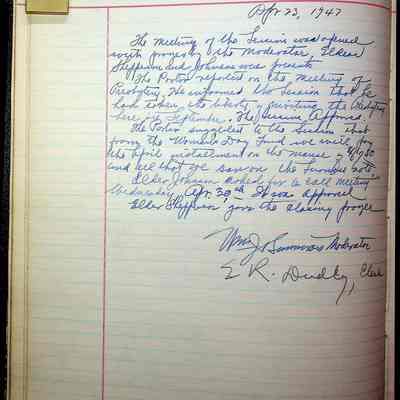 Apr 23, 1947
The meeting of the Session was opened
with prayer by the Moderator. Elder
and Johnson was present
The Pastor reported on the meeting of
Presbytery. He informed the Session that he
had taken the liberty of inviting the Presbytery
here in September. The Session Approved.
The Pastor suggested to the Session that
from the Woman's Day Fund we will pay
the April installment on the manse
and all that we can on the Furnace note
Elder Johnson asked for a call meeting
Wednesday Apr. 30th. It was approved
Elder gave the closing prayer
Moderator
E R. Dudley, Clerk